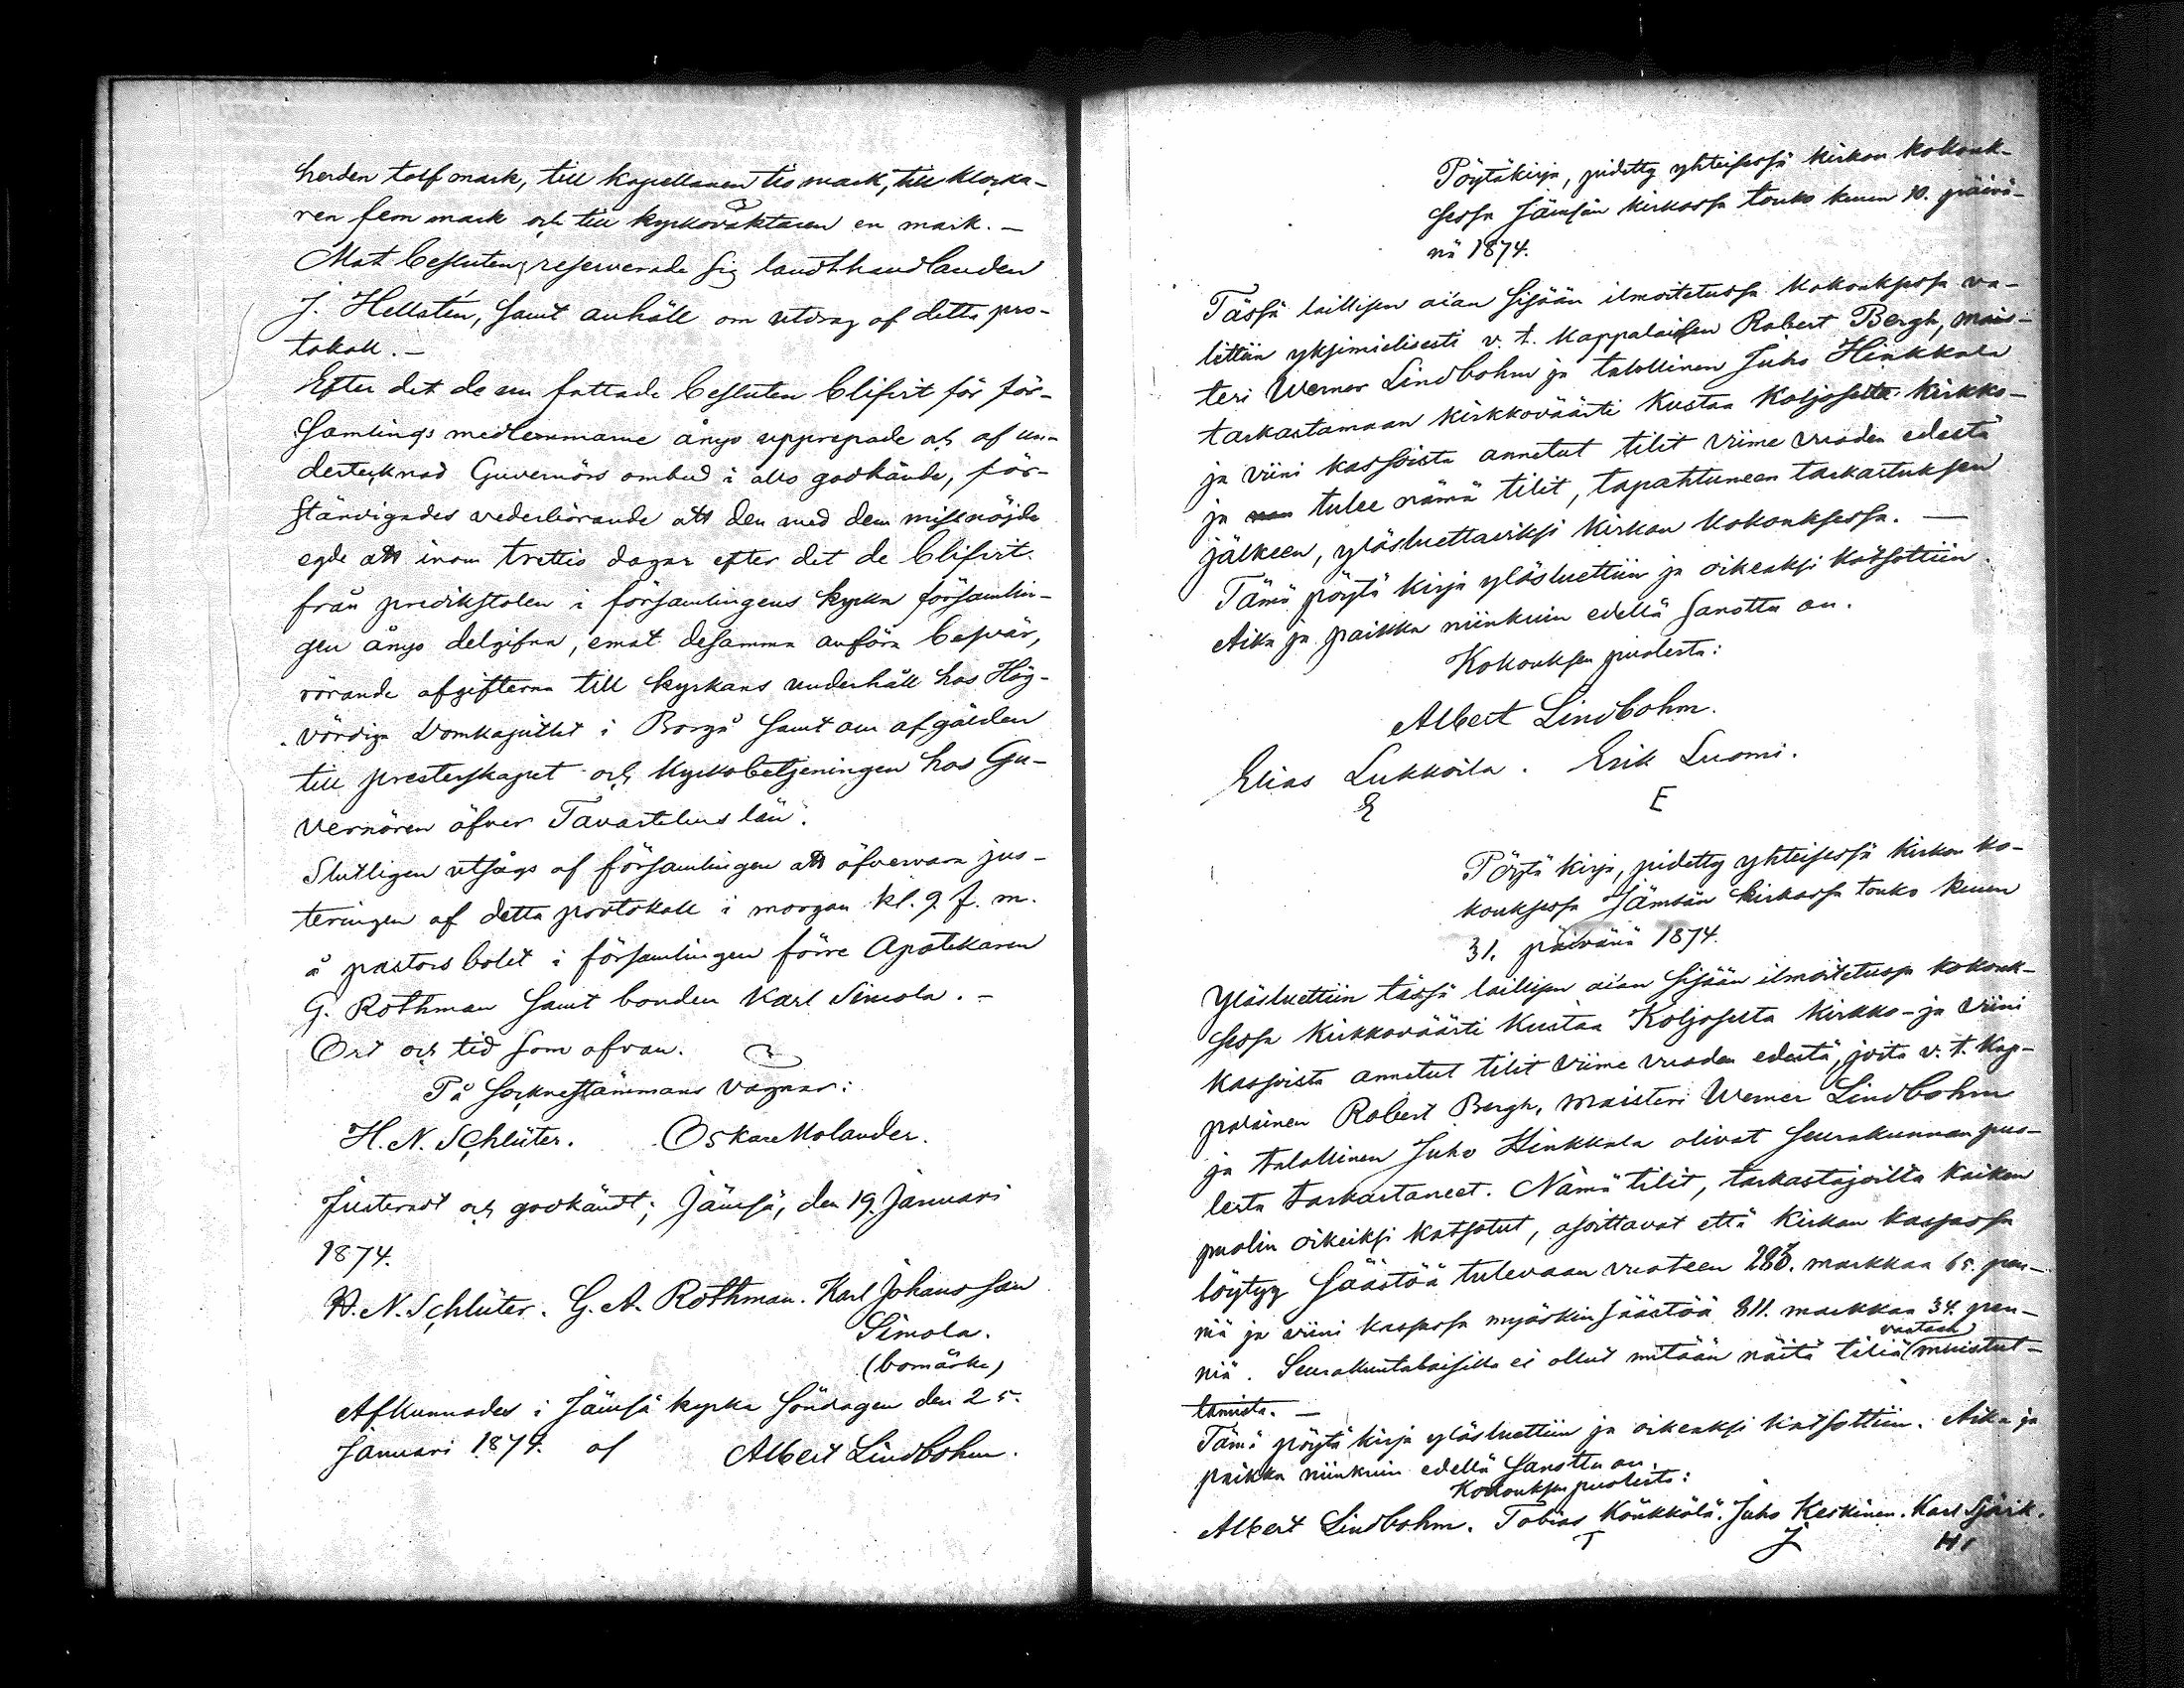 herden tolf mark, till kapellanen tio mark, till klocka-
ren fem mark och till kyrkovaktaren en mark. —
Mot besluten reserverade sig landthandlanden
J. Hellstén, samt anhöll om utdrag af detta pro-
tokoll. —
Efter det de nu fattade besluten blifvit för för-
samlings medlemmarne ånyo upprepade och af un-
dertecknad Guvernörs ombud i allo godkände, för-
ständigades vederbörande att den med dem missnöjde
egde att inom trettio dagar efter det de blifvit
från predikstolen i församlingens kyrka församlin-
gen ånyo delgifna, emot desamma anföra besvär,
rörande afgifterna till kyrkans underhåll hos Hög-
vördiga Domkapitlet i Borgå samt om afgälden
till presterskapet och kyrkobetjeningen hos Gu-
vernören öfver Tavastehus län.
Slutligen utsågs af församlingen att öfvervara jus-
teringen af detta protokoll i morgon kl. 9 f. m.
å pastorsbolet i församlingen förre Apotekaren
G. Rothman samt bonden Karl Simola. —
Ort och tid som ofvan.
På Socknestämmans vägnar:
H. N. Schlüter. Oskar Molander.
Justeradt och godkändt; Jämsä, den 19. Januari
1874.
H. N. Schlüter. G. A. Rothman. Karl Johansson
Simola.
(bomärke)
Afkunnades i Jämsä kyrka Söndagen den 25.
Januari 1874. af Albert Lindbohm.
Pöytäkirja, pidetty yhteisessä kirkon kokouk-
sessa Jämsän kirkossa touko kuun 10. päivä-
nä 1874.
Tässä laillisen aian sisään ilmoitetussa kokouksessa va-
littiin yksimielisesti v. t. kappalaisen Robert Bergh, mais-
teri Werner Lindbohm ja talollinen Juho Hinkkala
tarkastamaan kirkkoväärti Kustaa Koljoselta kirkko-
ja viini kassoista annetut tilit viime vuoden edestä
ja tulee nämä tilit, tapahtuneen tarkastuksen
jälkeen, ylösluettaviksi kirkon kokouksessa. —
Tämä pöytä kirja ylösluettiin ja oikeaksi katsottiin.
Aika ja paikka niinkuin edellä sanottu on.
Kokouksen puolesta:
Albert Lindbohm.
Elias Lukkoila. Erik Luomi.
E E
Pöytä kirja, pidetty yhteisessä kirkon ko-
kouksessa Jämsän kirkossa touko kuun
31. päivänä 1874.
Ylösluettiin tässä laillisen aian sisään ilmoitetussa kokouk-
sessa kirkkoväärti Kustaa Koljoselta kirkko- ja viini
kassoista annetut tilit viime vuoden edestä, joita v. t. Kap-
palainen Robert Bergh, maisteri Werner Lindbohm
ja talollinen Juho Hinkkala olivat seurakunnan puo-
lesta tarkastaneet. Nämä tilit, tarkastajoilta kaiken
puolin oikeiksi katsotut, osoittavat että kirkon kassassa
löytyy säästöä tulevaan vuoteen markkaa 65. pen-
niä ja viini kassassa myöskin säästöä 811. markkaa 34. pen-
niä. Seurakuntalaisilla ei ollut mitään näitä tiliä vastaan muistut-
tamista. —
Tämä pöytä kirja ylösluettiin ja oikeaksi katsottiin. Aika ja
paikka niinkuin edellä sanottu on.
Kokouksen puolesta:
Albert Lindbohm. Tobias Könkkölä. Juho Keskinen. Karl Spärk.
T J H